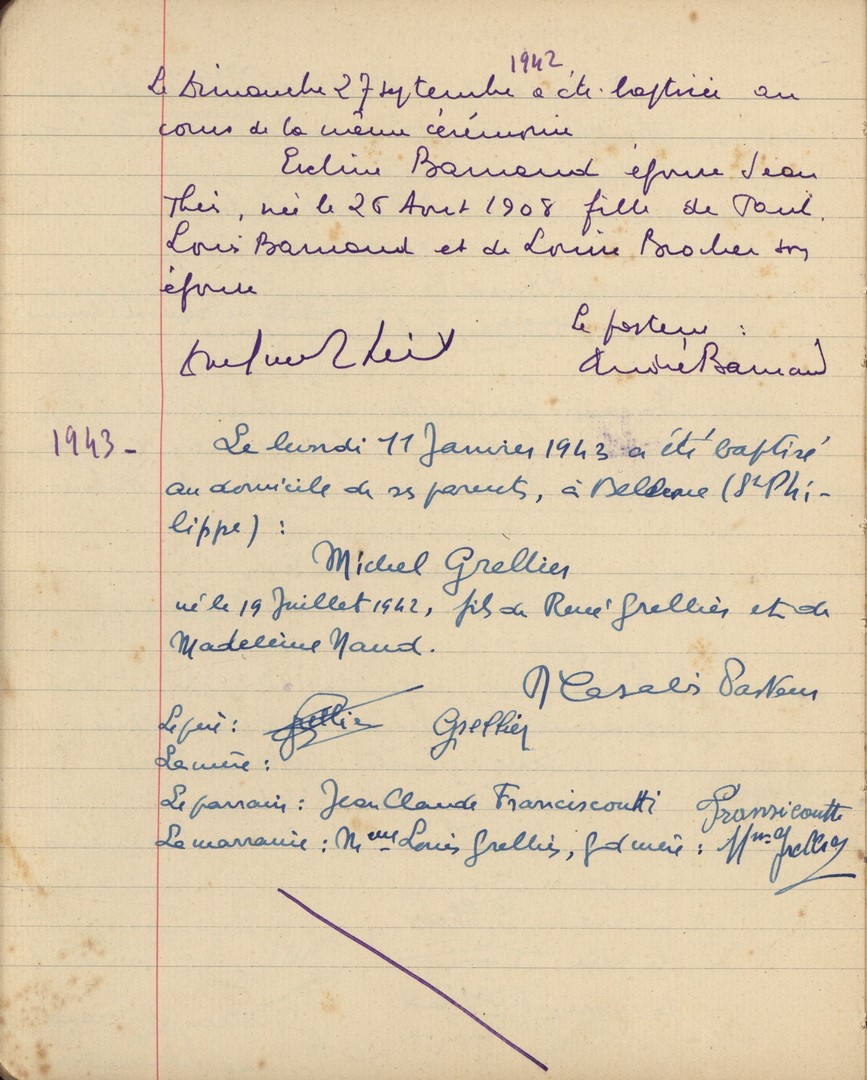 1942
Le Dimanche 27 septembre a été baptisée au
cours de la même cérémonie
Eveline Barnaud épouse Jean
Theis, née le 26 Aout 1908 fille de Paul
Louis Barnaud et de Louise Brocher son
épouse
Le pasteur :
André Barnaud
1943 - Le lundi 11 Janvier 1943 a été baptisé
au domicile de ses parents, à (St Phi-
lippe) :
Michel Grellier
né le 19 Juillet 1942, fils de René Grellier et de
Madeleine Naud.
Casalis Pasteur
Le père : Grellier Grellier
La mère :
Le parrain : Jean Claude Franciscoutti Fransicoutti
La marraine : Mme Louis Grellier, gd mère : Mme Grellier